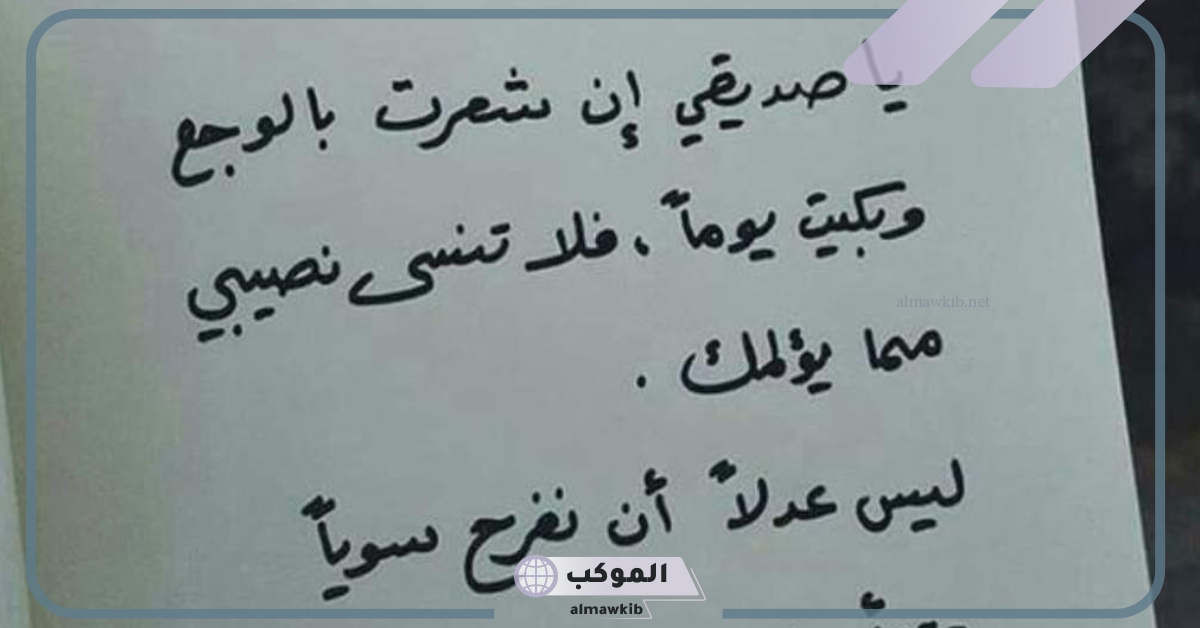 يا صديقي إن شعرت بالوجع
وبكيت يوماً ، فلا تنسى نصيبي
almawkib.net
مما يؤلمك .
ليس عدلاً أن نفرح سوياً
الموكب
almawkib